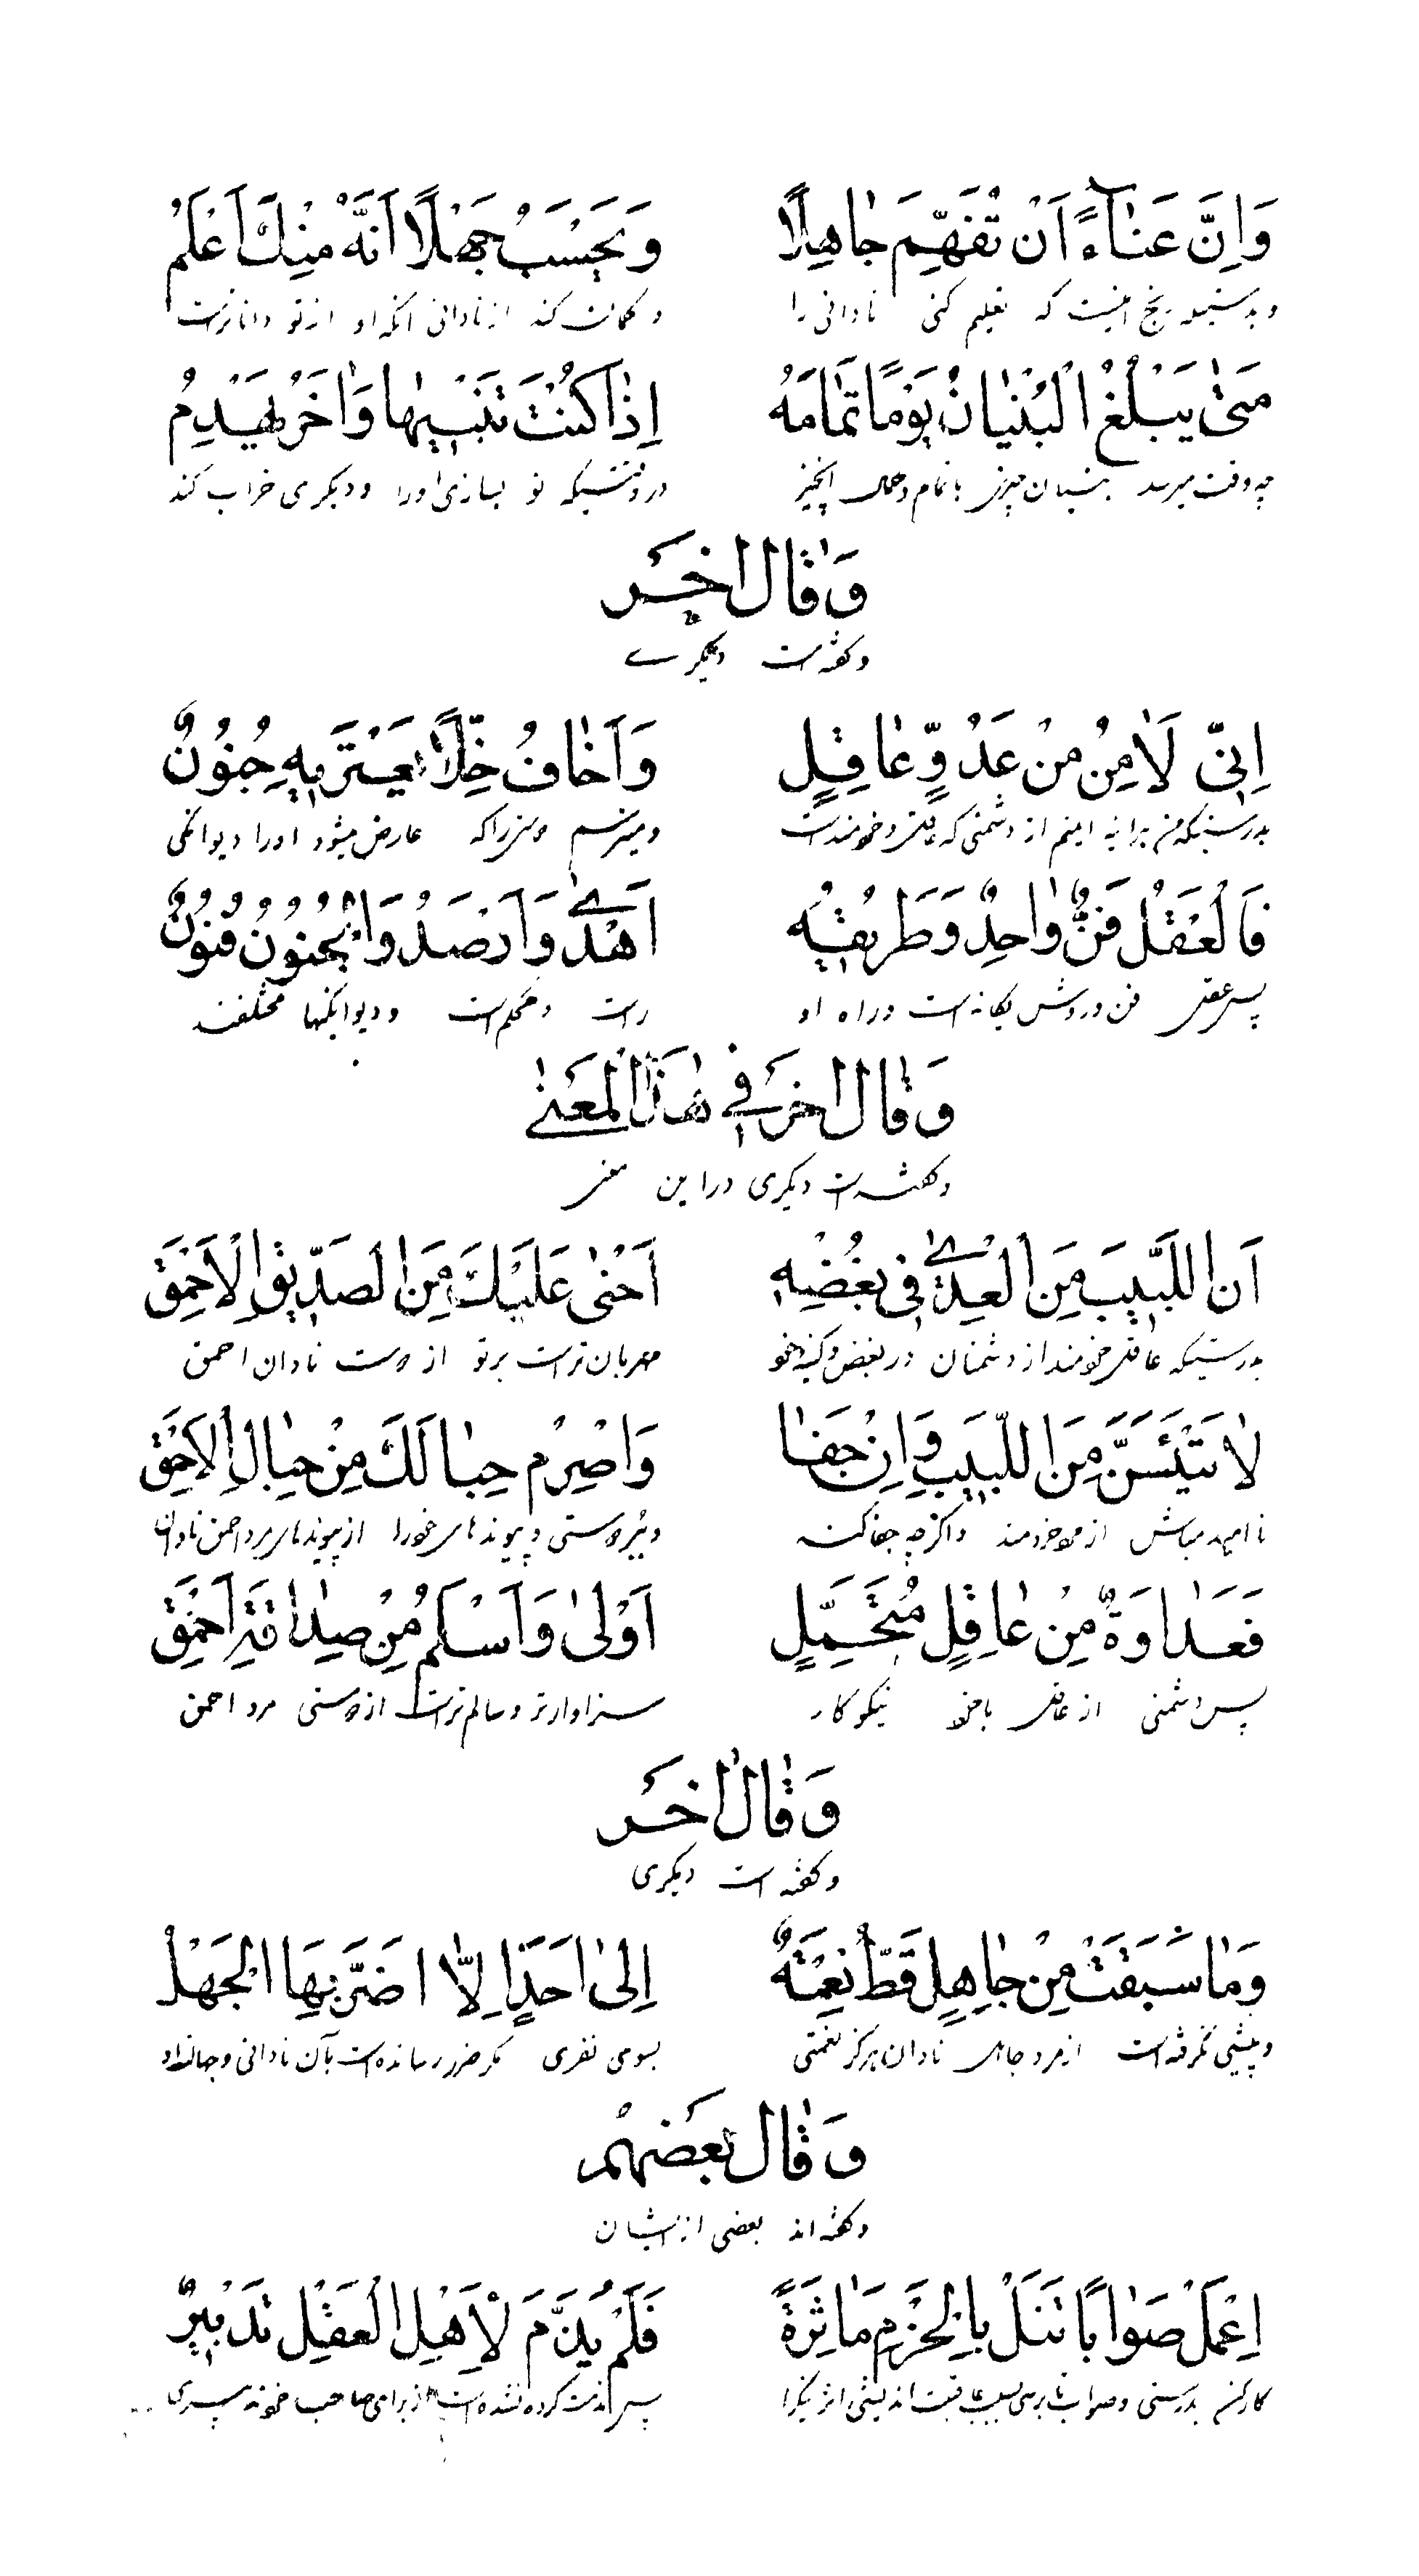 وَاِنَّ عَنٰاءً اَنْ تُفَهِّمَ جٰاهِلًا وَيَحْسَبُ جَهْلًا اَنَّهُ مِنْكَ اَعْلَمُ
و بدرستیکه رنج اینست که تعلیم کنی نادانی را و کمان کند از نادانی آنکه او از تو داناتر است
مَتىٰ يَبْلُغُ الْبُنْيٰانُ يَوْمًا تَمٰامَهُ اِذٰا كُنْتَ تَبْنِيهٰا وَاٰخَرُ يَهْدِمُ
چه وقت میرسد بنیان چیزی با تمام در وقتیکه تو بسازی او را و دیکری خراب کند
وَقٰالَ اٰخَر
و کفته است دیکرے
اِنِّي لَاٰمِنُ مِنْ عَدُوٍّ عٰاقِلٍ وَاَخٰافُ خِلًّا يَعْتَرِيهِ جُنُونٌ
بدرستیکه من هراینه ایمنم از دشمنی که عاقل و خردمند است و میترسم دوستی را که عارض میشود او را دیوانکی
فَالْعَقْلُ فَنٌّ وٰاحِدٌ وَطَرِيقُهُ اَهْدٰى وَاَرْصَدُ وَالْجُنُونُ فُنُونٌ
پس عقل فن و روش یکانه است و راه او راست و محکم است و دیوانکیها مختلفند
وَقٰالَ اٰخَرُ فِي هٰذَا الْمَعْنىٰ
و کفته است دیکری در این معنی
اَنَّ اللَّبِيبَ مِنَ الْعِدٰى فِي بُغْضِهِ اَحْنىٰ عَلَيْكَ مِنَ الصَّدِيقِ الْاَحْمَقِ
بدرستیکه عاقل خردمند از دشمنان در بغض و کینه خود مهربان تر است بر تو از دوست نادان احمق
لٰا تَيْئَسَنَّ مِنَ اللَّبِيبِ وَاِنْ جَفٰا وَاصْرِمْ حِبٰالَكَ مِنْ حِبٰالِ الْاَحْمَقِ
ناامید مباش از مرد خردمند و اکر چه جفا کند و ببر دوستی و پیوندهای خود را از پیوندهای مرد احمق نادان
فَعَدٰاوَةٌ مِنْ عٰاقِلٍ مُتَجَمِّلٍ اَوْلىٰ وَاَسْلَمُ مِنْ صِدٰاقَةِ اَحْمَقِ
پس دشمنی از عاقل نیکو کار سزاوارتر و سالم تر است از دوستی مرد احمق
وَقٰالَ اٰخَر
و کفته است دیکری
وَمٰا سَبَقَتْ مِنْ جٰاهِلٍ قَطُّ نِعْمَةٌ اِلىٰ اَحَدٍ اِلّٰا اَضَرَّ بِهَا الْجَهْلُ
و پیشی نکرفته است از مرد جاهل نادان هرکز نعمتی بسوی نفری مکر ضرر رسانده است بآن نادانی و جهالت او
وَقٰالَ بَعْضُهُمْ
و کفته اند بعضی از ایشان
اِعْمَلْ صَوٰابًا تَنَلْ بِالْحَزْمِ مَاٰثِرَةً فَلَمْ يُذَمَّ لِاَهْلِ الْعَقْلِ تَدْبِيرٌ
کار کن بدرستی و صواب تا برسی بسبب عاقبت اندیشی اثر نیک را پس مذمت کرده نشده است از برای صاحب خرد